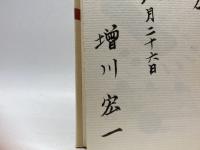 月二十六日
増川宏一